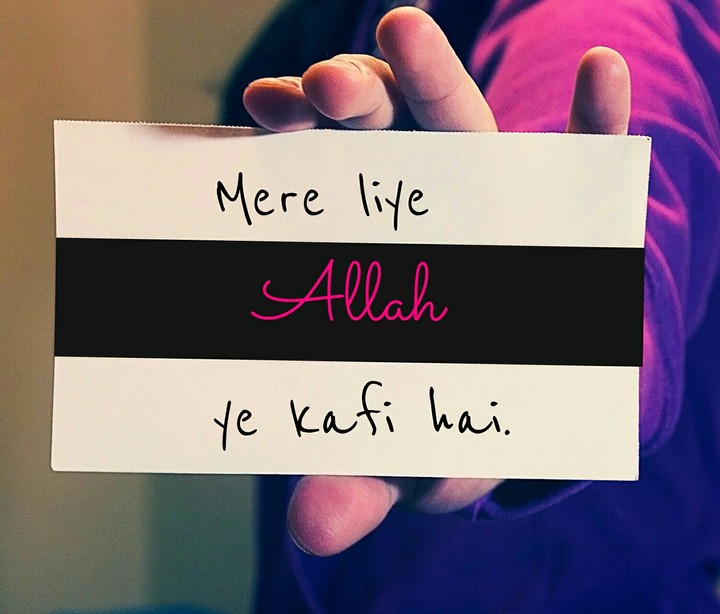 Mere liye
Allah
ye kafi hai.